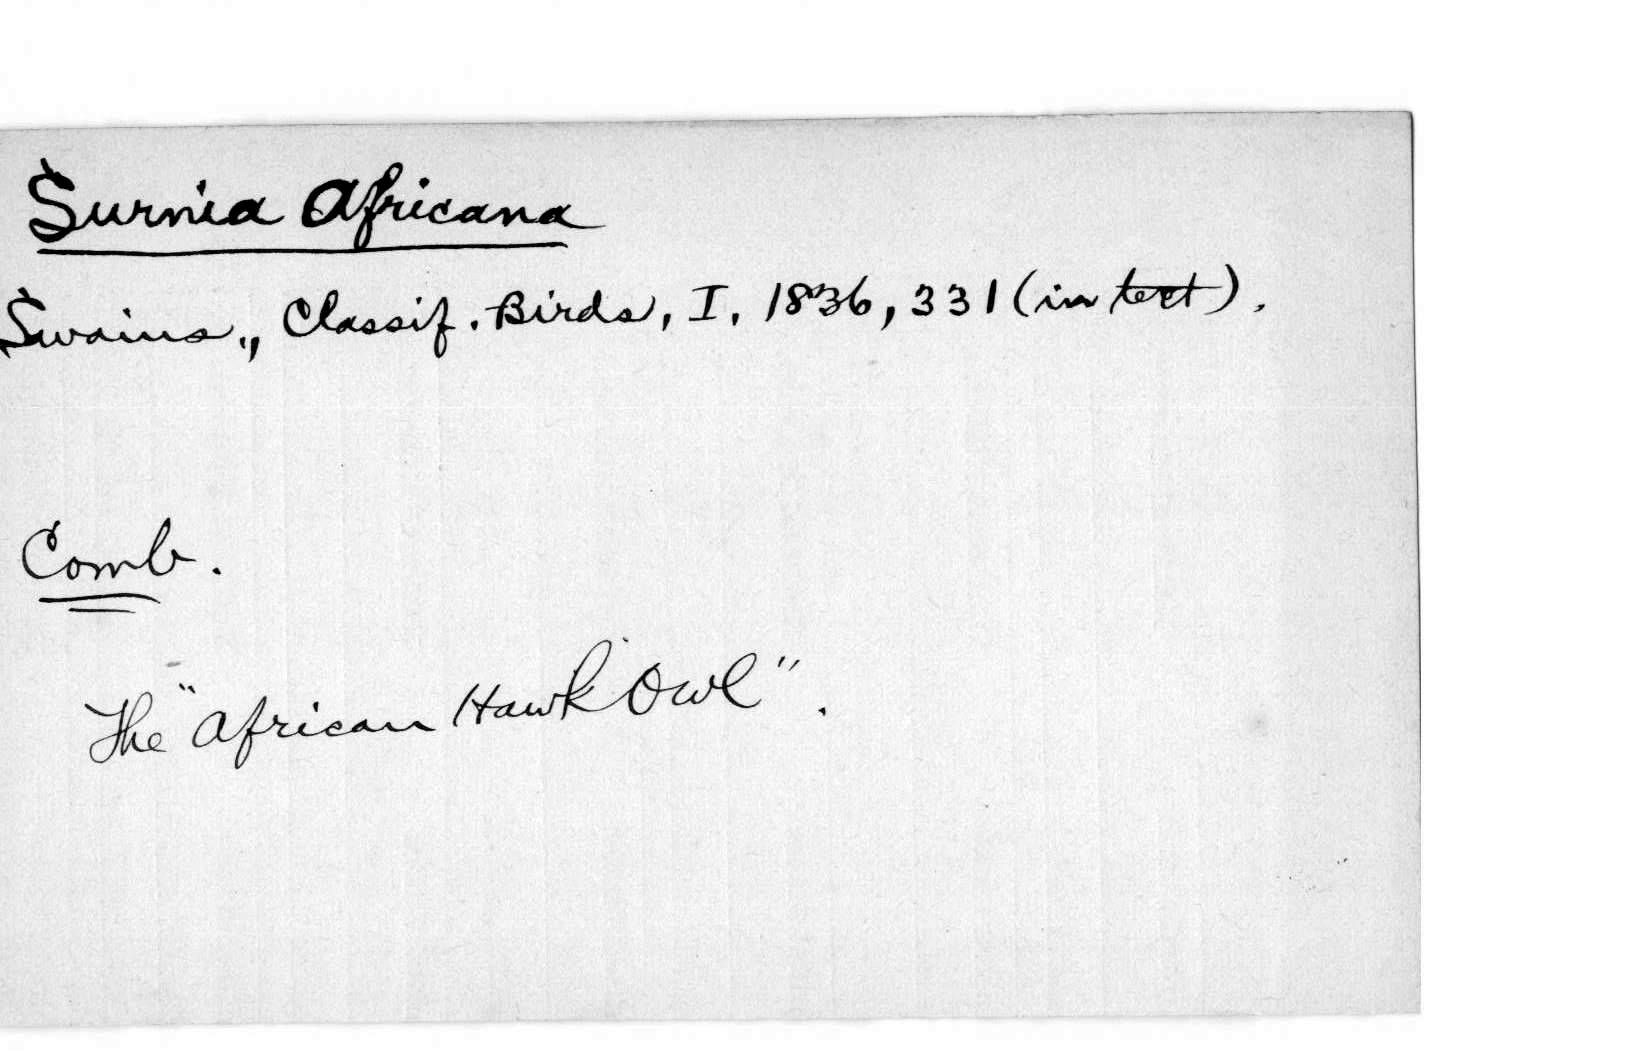 Surnia Africana
Swains., Classif. Birds, I, 1836, 331 (in text).
Comb.
The "African Hawk Owl".